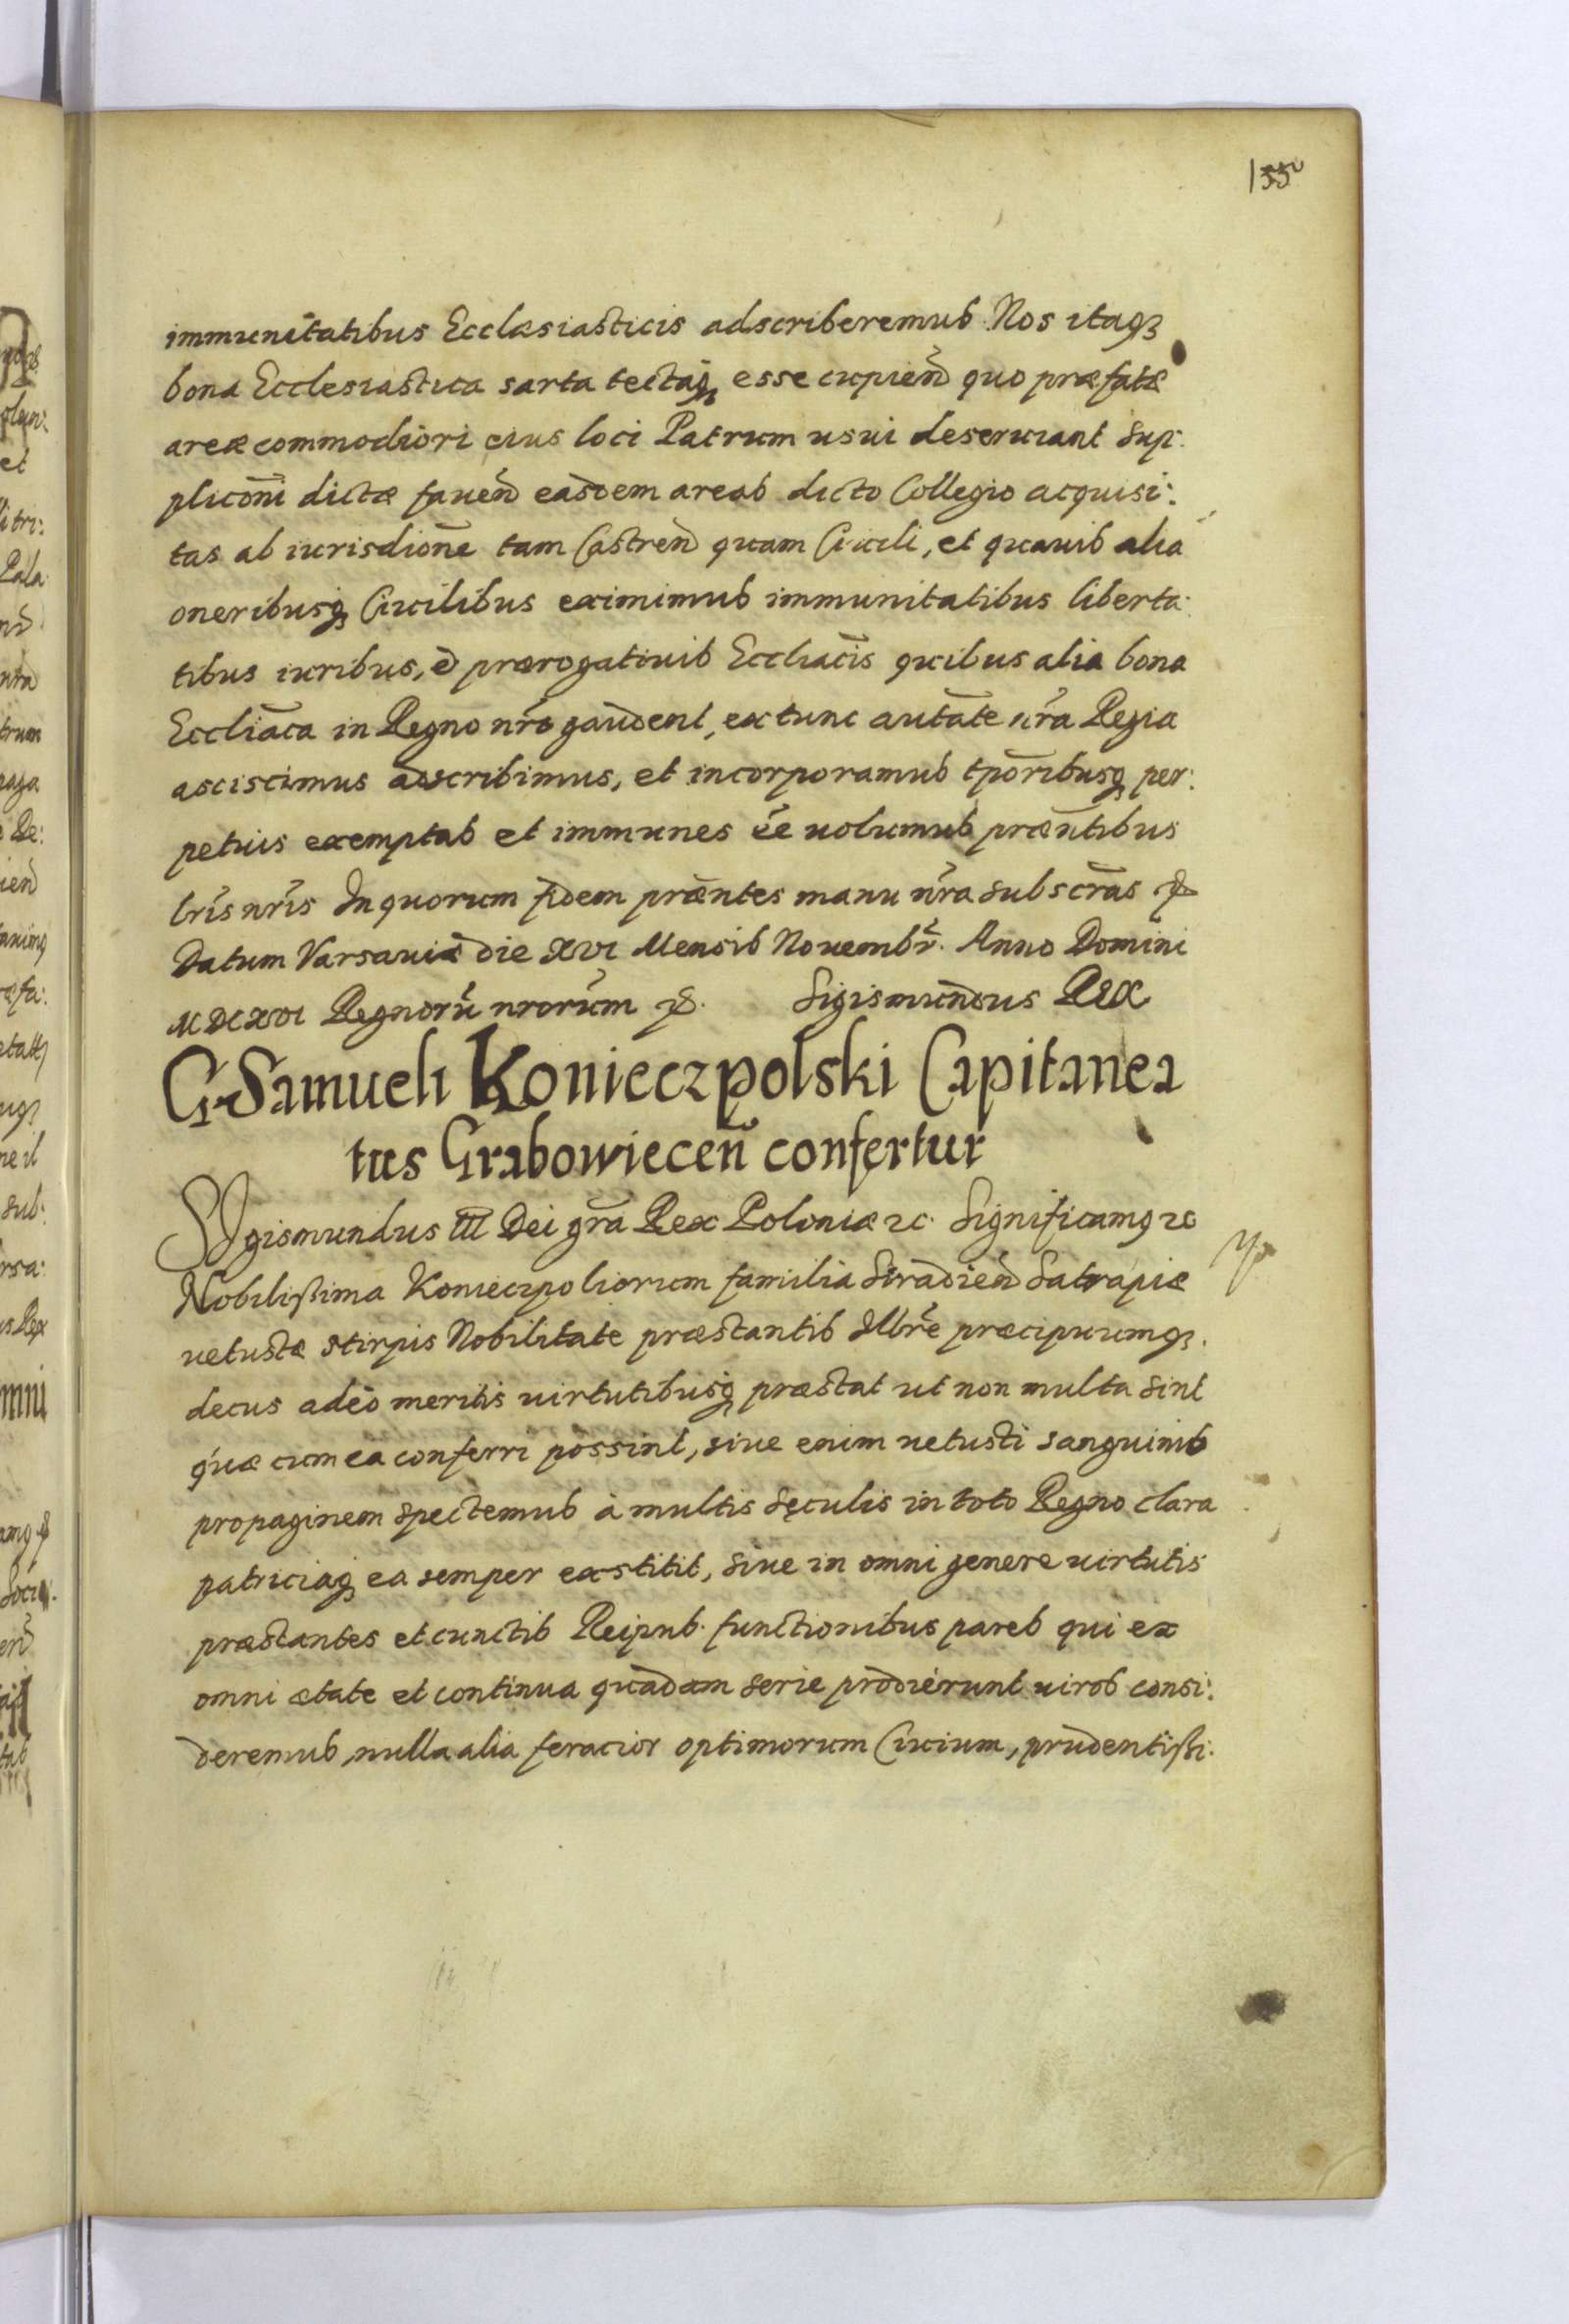 155
immunitatibus Ecclæsiasticis adscriberemus Nos itaq3
bona Ecclesiastica sarta tectaq3 esse cupień quo præfatæ
areæ commodiori eius loci Patrum usui deseruiant sup:
pliconi dictæ fauen easdem areas dicto Collegio acquisi:
tas ab iurisdione tam Castren quam Ciuili, et quauis alia
oneribusq3 Ciuilibus eximimus immunitatibus liberta:
tibus iuribus, et prærogatiuis Eccliacis quibus alia bona
Eccliaca in Regno nro gaudent, ex tunc autate nra Regia
asciscimus adscribimus, et incorporamus tporibusq3 per:
petuis exemptas et immunes ee uolumus præntibus
lris nris In quorum fidem præntes manu nra subscras
Datum Varsauiæ die XVI Mensis Nouembr. Anno Domini
MDCXVI Regnorū nrorum Sigismundus Rex
G. Samueli Konieczpolski Capitanea
tus Grabowiecen confertur
Sigismundus III Dei gra Rex Poloniæ 2c. Significamq 2c
Nobilissima Koniecpoliorum familia Siradien Satrapiæ
uetustæ stirpis Nobilitate præstantis Illbre præcipuumq3.
decus adeo meritis uirtutibusq3 præstat ut non multa sint
quæ cum ea conferri possint, siue enim uetusti sanguinis
propaginem spectemus à multis sęculis in toto Regno clara
patriciaq3 ea semper exstitit, siue in omni genere uirtutis
præstantes et cunctis Reipub. functionibus pares qui ex
omni ætate et continua quadam serie prodierunt uiros consi:
deremus, nulla alia feracior optimorum Ciuium, prudentissi: